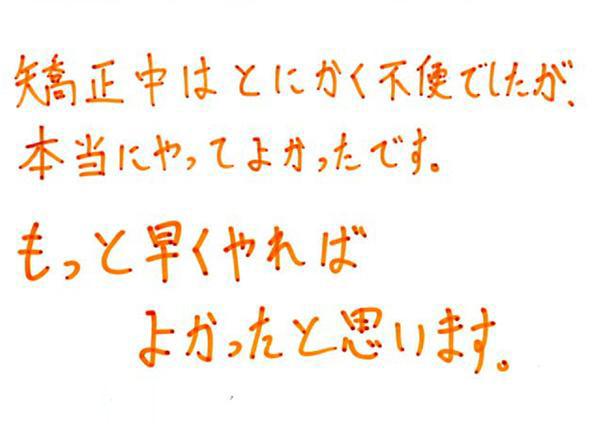 矯正中はとにかく不便でしたが、
本当にやってよかったです。
もっと早くやれば
よかったと思います。